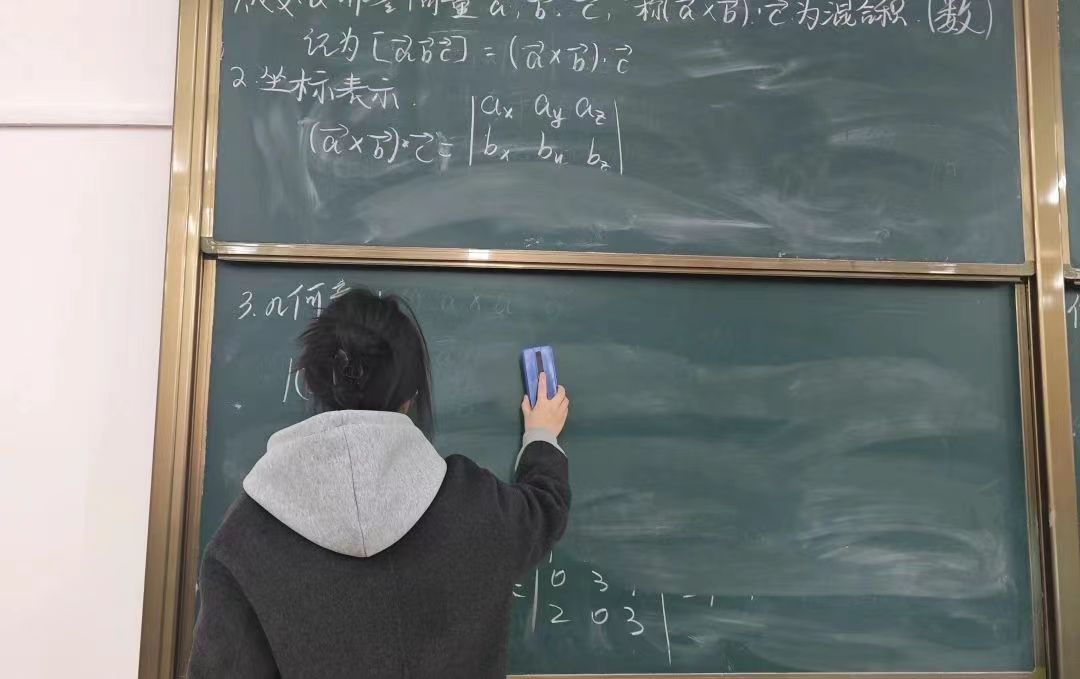 量 a⃗, b⃗. c⃗, 称(a⃗×b⃗)·c⃗为混合积.(数)
记为 [a⃗b⃗c⃗] = (a⃗×b⃗)·c⃗
2.坐标表示.
(a⃗×b⃗)·c⃗= | aₓ a_y a_z |
| bₓ b_y b_z |
3.几何
= | 0 3
2 0 3 |